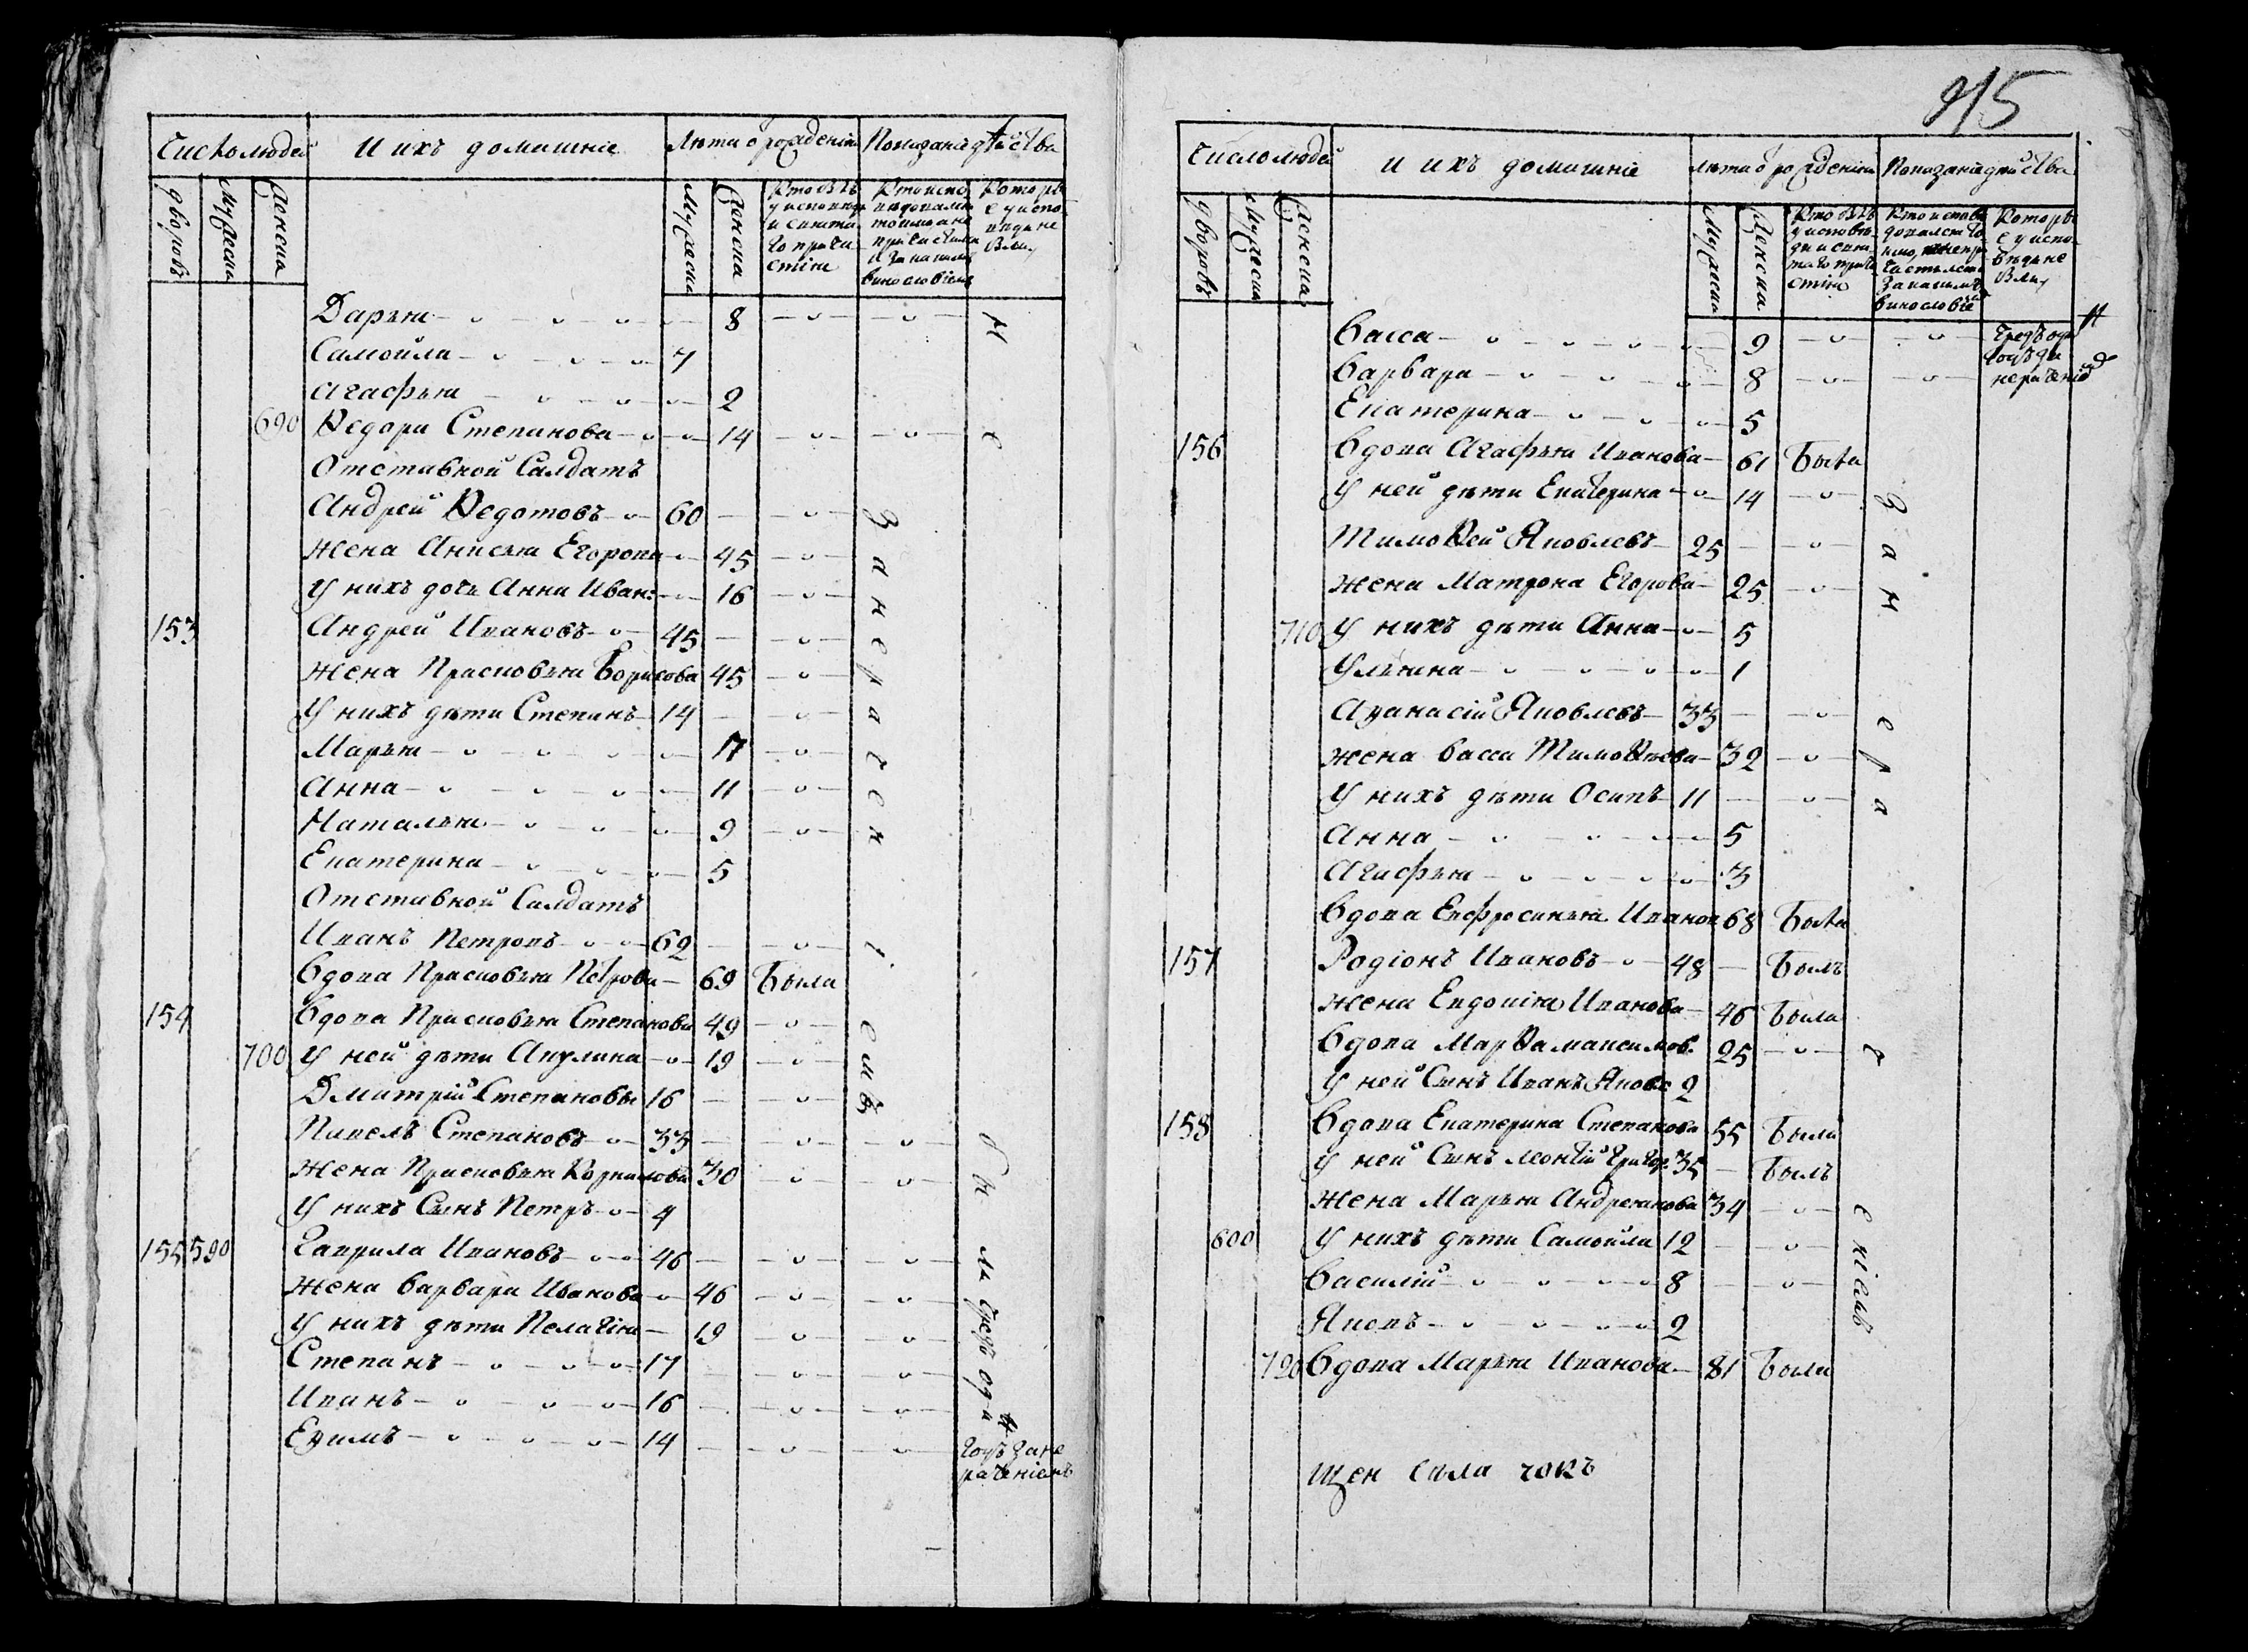 Число людей И ихъ домашніе Лѣта ѿ рожденія Показаніе дѣйства
дворовъ Мужеска Женска Мужеска Женска
Кто былъ у исповѣди и святаго причастія
Которые у исповѣди не были
Дарья 8
Самойла 7
Агафья 2
690 Ѳедора Степанова 14
Отставной Салдатъ
Андрей Ѳедотовъ 60
Жена Анисья Егорова 45
У нихъ дочь Анна Иван: 16
153 Андрей Ивановъ 45
Жена Прасковья Борисова 45
У нихъ дѣти Степанъ 14
Марья 17
Анна 11
Наталья 9
Екатерина 5
Отставной Салдатъ
Иванъ Петровъ 62
Вдова Прасковья Петрова 69 Была
154 Вдова Прасковья Степанова 49
700 У ней дѣти Акулина 19
Дмитрій Степановы 16
Павелъ Степановъ 33
Жена Прасковья Корнилова 30
У нихъ Сынъ Петръ 4
155 590 Гаврила Ивановъ 46
Жена Варвара Иванова 46
У нихъ дѣти Пелагія 19
Степанъ 17
Иванъ 16
Ефимъ 14
за нераченіемъ
не были чредъ один
годъ за не
раченіемъ
915
Число людей И ихъ домашніе Лѣта ѿ рожденія Показаніе дѣйства
дворовъ Мужеска Женска Мужеска Женска
Кто былъ у исповѣди и святаго причастія
Которые у исповѣди не были
Васса 9
Варвара 8
Екатерина 5
156 Вдова Агафья Иванова 61 Была
У ней дѣти Екатерина 14
Тимоѳей Яковлевъ 25
Жена Матрона Егорова 25
710 У нихъ дѣти Анна 5
Ульяна 1
Афанасій Яковлевъ 33
Жена Васса Тимоѳѣева 32
У нихъ дѣти Осипъ 11
Анна 5
Агафья 3
Вдова Евфросинья Иванов 68 Была
157 Родіонъ Ивановъ 48 Былъ
Жена Евдокія Иванова 46 Была
Вдова Марѳа Максимов. 25
У ней Сынъ Иванъ Яковл 2
158 Вдова Екатерина Степанова 55 Была
У ней Сынъ Леонтій Григор. 35 Былъ
Жена Марья Андреянова 34
600 У нихъ дѣти Самойла 12
Василій 8
Яковъ 2
720 Вдова Марья Иванова 81 Была
за нераченіемъ